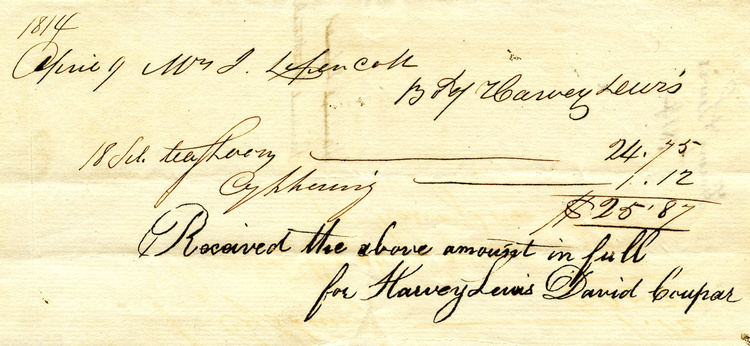 1814
April 9 Mrs J. Lippencott
Bot of Harvey Lewis
18 Sil. tea Spoons 24.75
Cyphering 1.12
$25.87
Received the above amount in full
for Harvey Lewis David Coupar